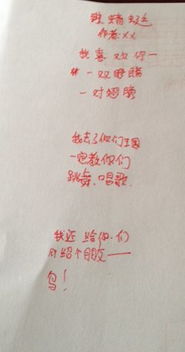 蜻蜓
作者:XX
我喜欢你—
一双眼睛
一对翅膀
我去了你们王国
一定教你们
跳舞、唱歌
我还给你们
介绍个朋友——
鸟!